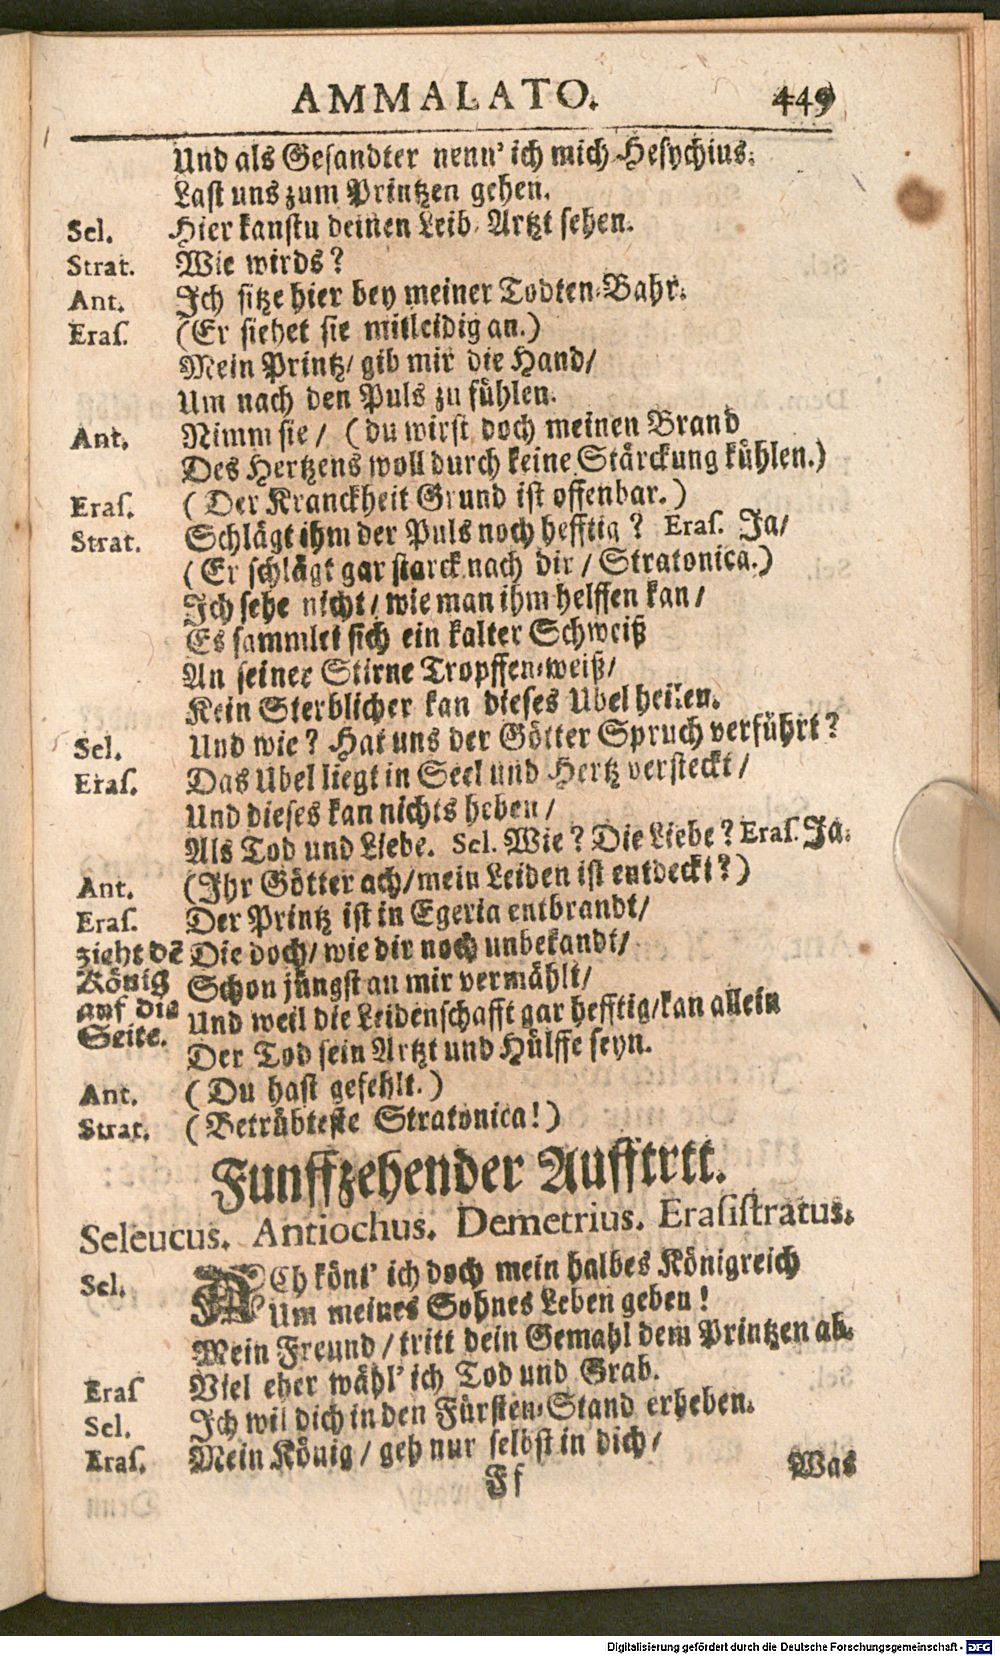 AMMALATO. 449
Und als Gesandter nenn' ich mich Hesychius.
Last uns zum Printzen gehen.
Sel. Hier kanstu deinen Leib-Artzt sehen.
Strat. Wie wirds?
Ant. Ich sitze hier bey meiner Todten-Bahr.
Eras. (Er siehet sie mitleidig an.)
Mein Printz/ gib mir die Hand/
Um nach den Puls zu fühlen.
Ant. Nimm sie/ (du wirst doch meinen Brand
Des Hertzens woll durch keine Stärckung kühlen.)
Eras. (Der Kranckheit Grund ist offenbar.)
Strat. Schlägt ihm der Puls noch hefftig? Eras. Ja/
(Er schlägt gar starck nach dir/ Stratonica.)
Ich sehe nicht/ wie man ihm helffen kan/
Es sammlet sich ein kalter Schweiß
An seiner Stirne Tropffen-weiß/
Kein Sterblicher kan dieses Ubel heilen.
Sel. Und wie? Hat uns der Götter Spruch verführt?
Eras. Das Ubel liegt in Seel und Hertz versteckt/
Und dieses kan nichts heben/
Als Tod und Liebe. Sel. Wie? Die Liebe? Eras. Ja.
Ant. (Ihr Götter ach/ mein Leiden ist entdeckt?)
Eras. Der Printz ist in Egeria entbrandt/
zieht dē Die doch/ wie dir noch unbekandt/
König Schon jüngst an mir vermählt/
auf die Und weil die Leidenschafft gar hefftig/ kan allein
Seite. Der Tod sein Artzt und Hülffe seyn.
Ant. (Du hast gefehlt.)
Strat. (Betrübteste Stratonica!)
Funffzehender Aufftrtt.
Seleucus. Antiochus. Demetrius. Erasistratus.
Sel. ACh könt' ich doch mein halbes Königreich
Um meines Sohnes Leben geben!
Mein Freund/ tritt dein Gemahl dem Printzen ab.
Eras Viel eher wähl' ich Tod und Grab.
Sel. Ich wil dich in den Fürsten-Stand erheben.
Eras. Mein König/ geh nur selbst in dich/
Ff Was
Digitalisierung gefördert durch die Deutsche Forschungsgemeinschaft - DFG